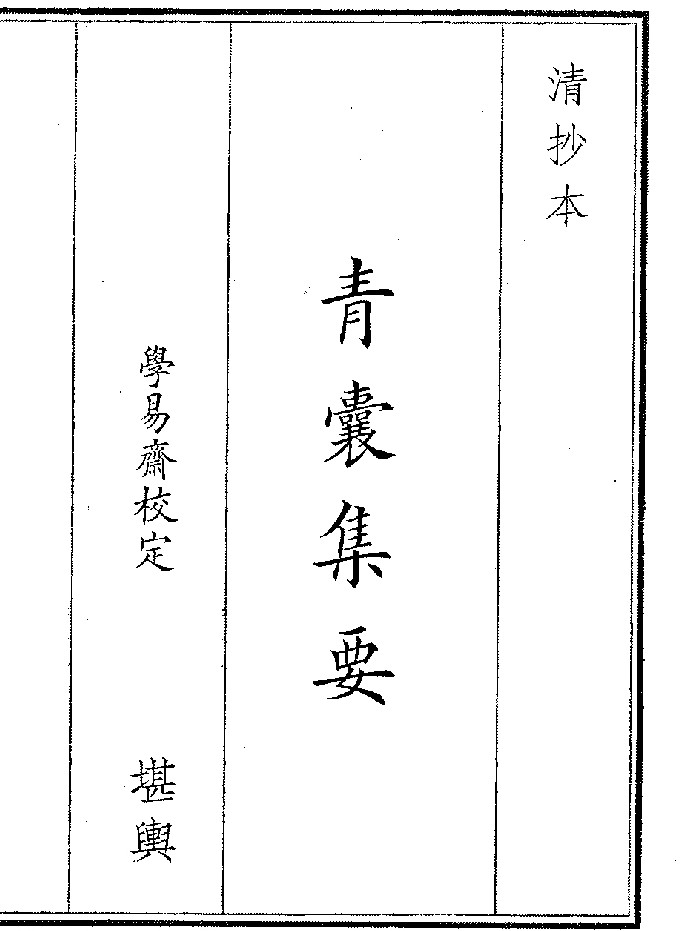 清抄本
青囊集要
學易齋校定
堪輿